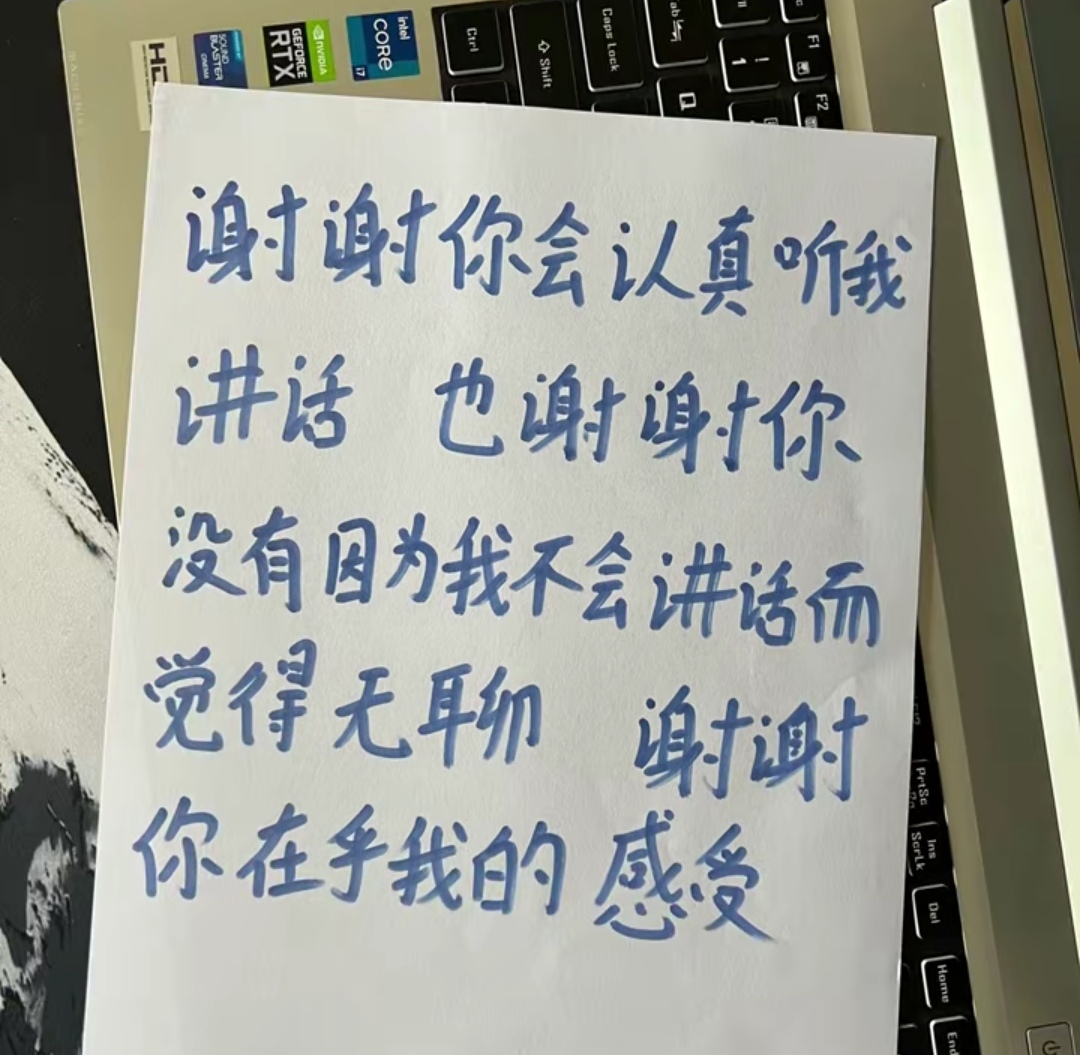 intel
CORE
i7
NVIDIA
GEFORCE
RTX
SOUND
BLASTER
CINEMA
Ctrl
Shift
Caps Lock
Tab
Q
! 1
F1
F2
谢谢你会认真听我
讲话 也谢谢你
没有因为我不会讲话而
觉得无聊 谢谢
你在乎我的感受
PrtSc
Ins
ScrLk
Del
Home
End